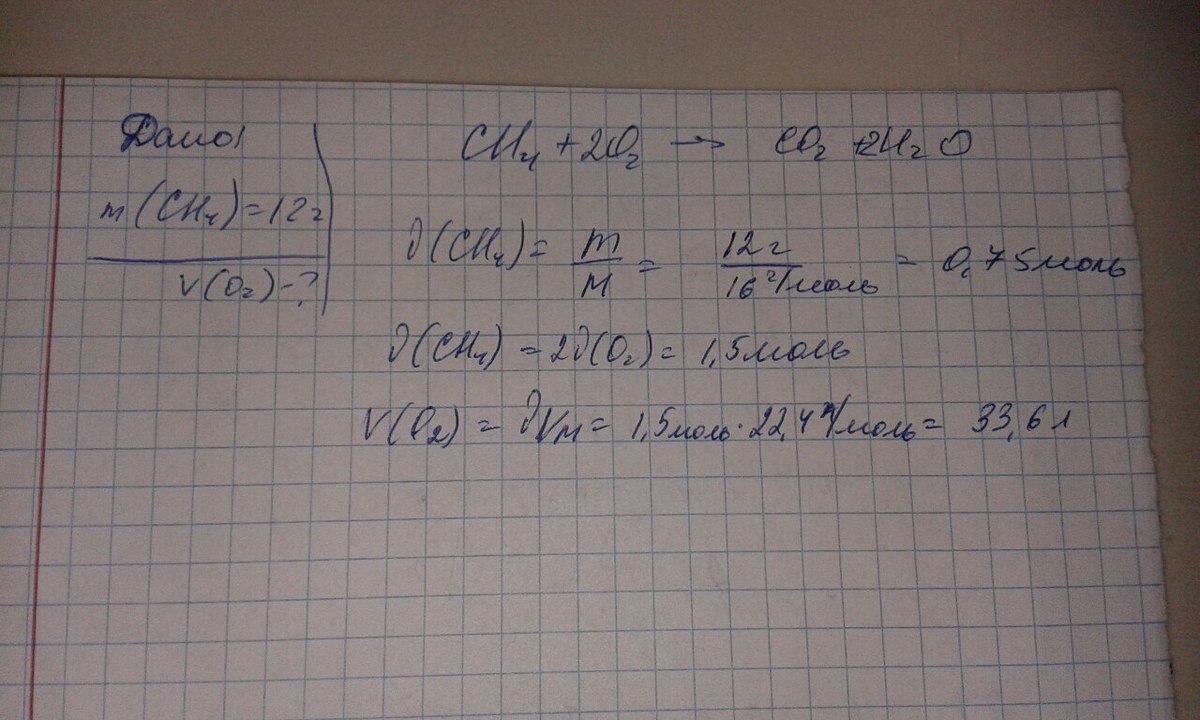 Дано:
CH₄ + 2O₂ → CO₂ + 2H₂O
m(CH₄)=12г
V(O₂)-?
ν(CH₄) = m/M = 12г/16г/моль = 0,75моль
ν(CH₄) = 2ν(O₂) = 1,5моль
V(O₂) = νVм = 1,5моль·22,4л/моль = 33,6л